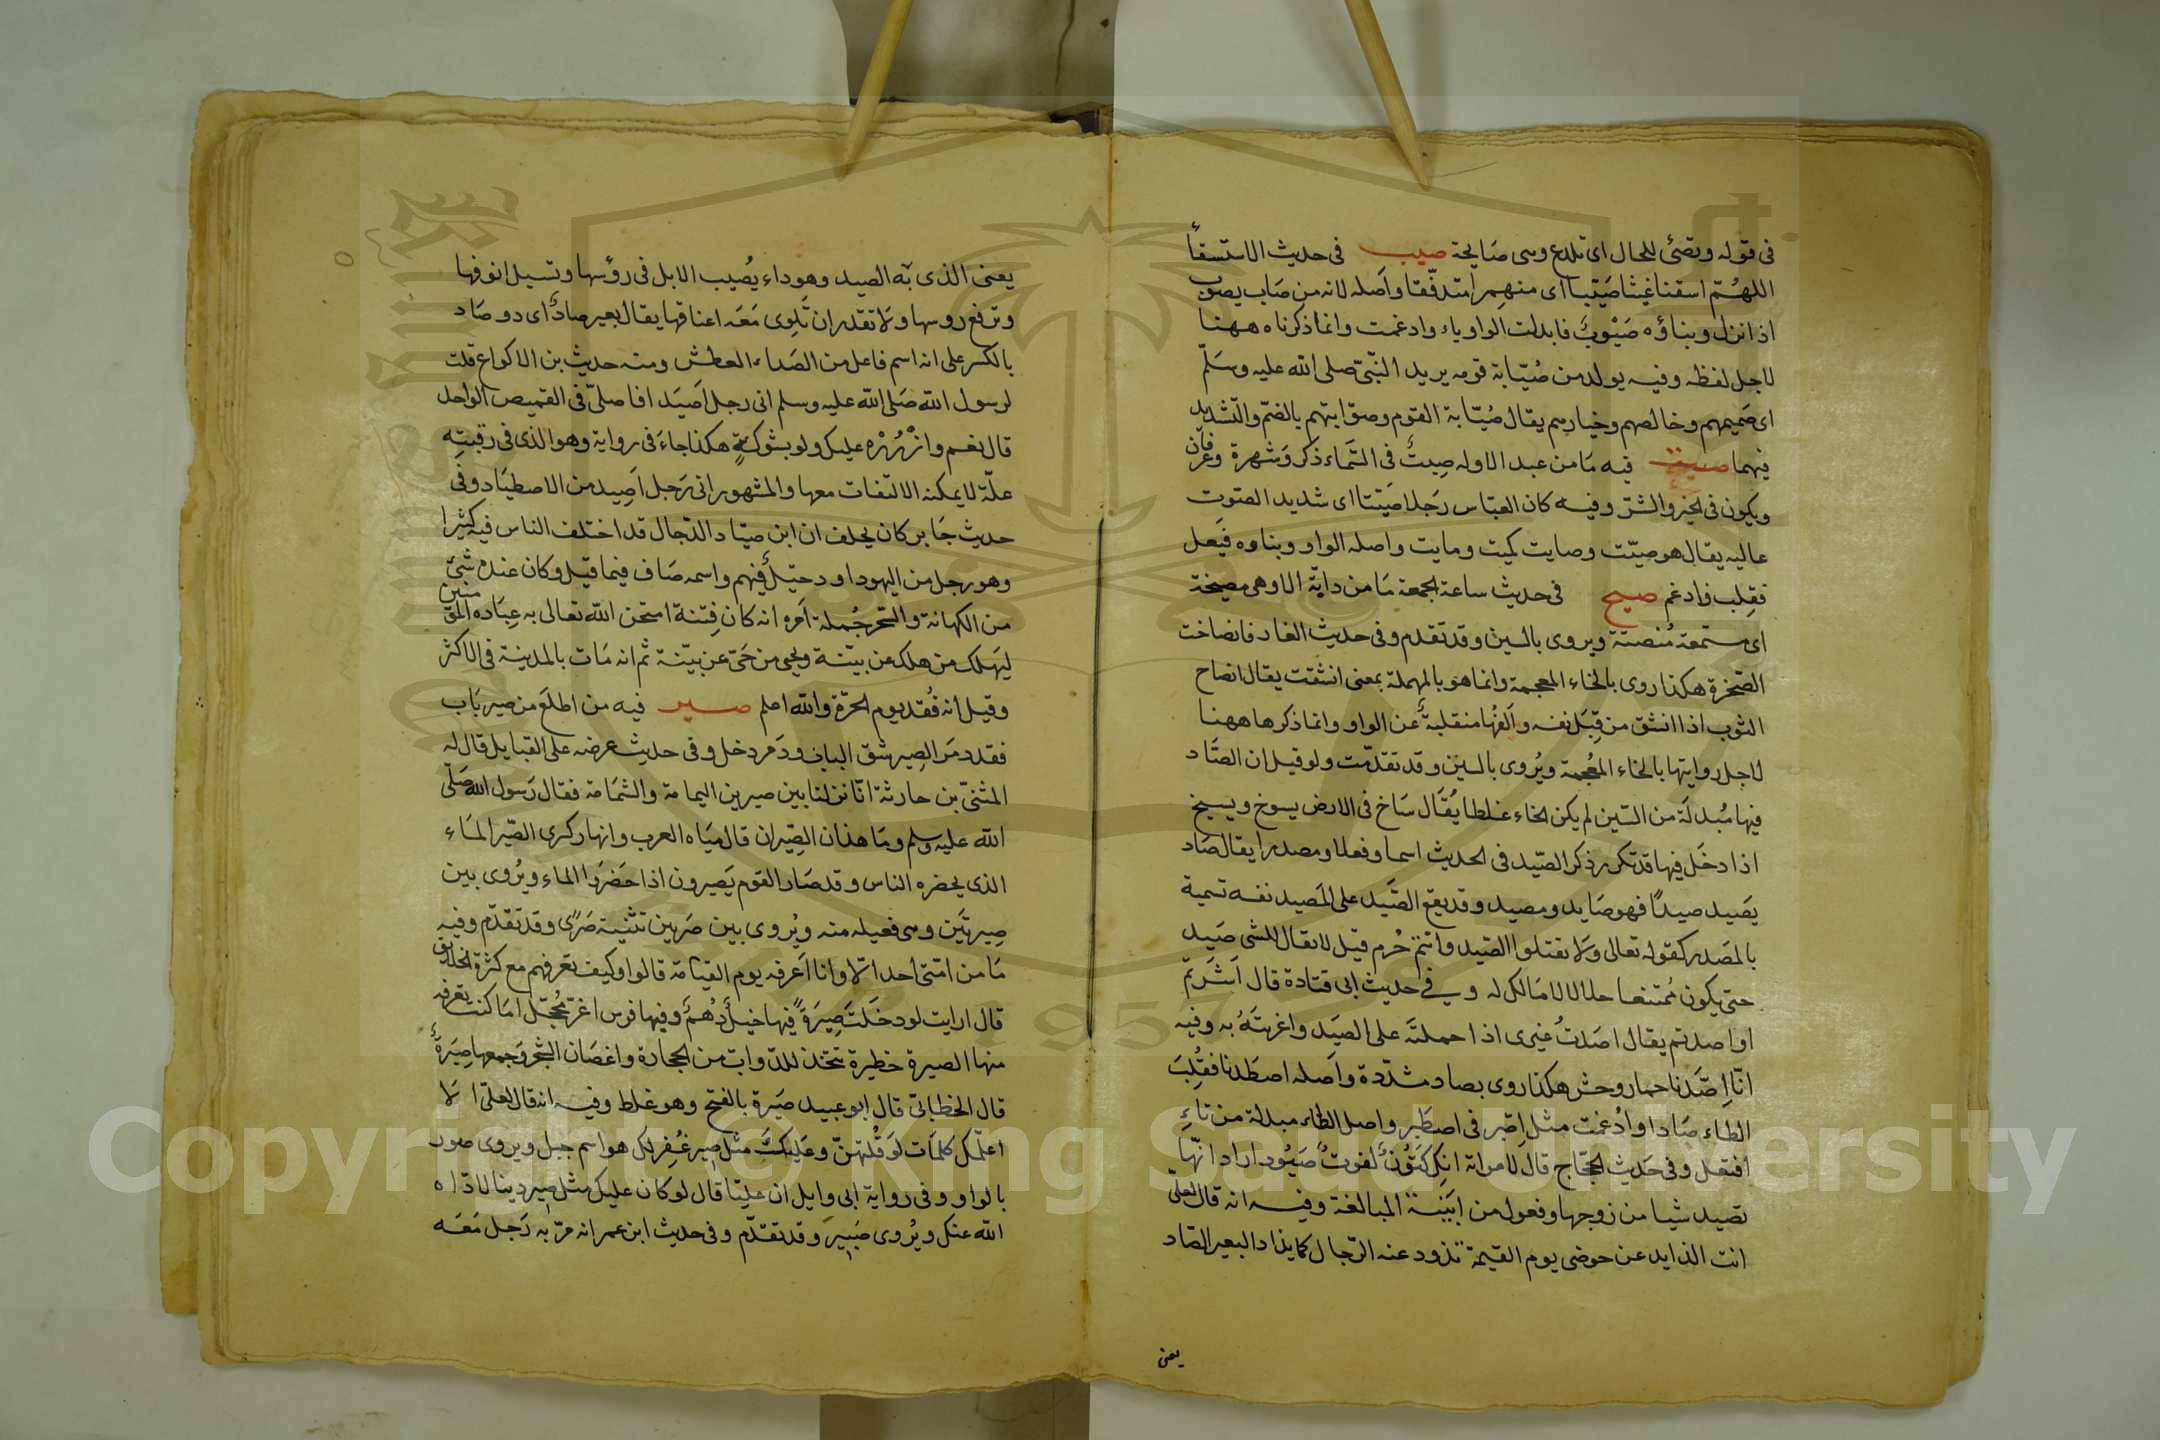 في قوله وتصئ للحال اى تلدع وهى صَايحة صيب في حديث الاستسقأ
اللهُمّ اسقنا غيثا صَيّبا اى منهمرا متدفّقا وأصله لانه من صَاب يصوب
اذا نزل وبناؤه صَيْوِبٌ فابدلت الواو ياء وادغمت وانما ذكرناه ههنا
لاجل لفظه وفيه يولد من صُيّابة قومه يريد النّبىّ صلى الله عليه وسَلّم
اى صَميمهم وخالصهم وخيارهم يقال صُيّابة القوم وصوّابتهم بالضمّ والتّشديد
فيهما صيت فيه مَا من عبد الا وله صِيتٌ في السّماء ذكر وَشهرة وعرفان
ويكون في الخير والشرّ وفيه كان العبّاس رَجلا صَيّتا اى شديد الصّوت
عاليه يقال هو صيّت وصايت كميت ومايت واصله الواو وبناوه فَيعل
فقلِب وادغم صيح في حديث ساعة الجمعة مَا من دابّة الا وهى مصيخة
اى مستمعة مُنصتة ويروى بالسين وقد تقدم وفى حديث الغار فانصاخت
الصّخرة هكذا روى بالخاء المعجمة وانما هو بالمهملة بمعنى انشقت يقال انصاح
الثوب اذا انشق من قِبَل نفسه وألفُها منقلبةٌ عن الواو وانما ذكرها ههنا
لاجل روايتها بالخاء المعُجمة ويُروى بالسين وقد تقدّمت ولو قيل ان الصّاد
فيها مُبدلَة من السّين لم يكن الخاء غلطا يُقَال سَاخ فى الارض يسوخ ويسيخ
اذا دخَل فيها قد تكرر ذكر الصّيد فى الحديث اسما وفعلا ومصدرا يقال صَاد
يصَيد صيدًا فهو صَايد ومصيد وقد يقع الصّيد على المَصيد نفسه تسمية
بالمَصدر كقوله تعالى وَلا تقتلوا الصّيد وانتم حُرم قيل لا يقال للشى صَيد
حتى يكون مُمتنعا حلالا لا مَالك له وفي حديث ابى قتادة قال أشَرتم
او اصدتم يقال اصَدتُ غيرى اذا حملتَه على الصيَد واغريتَهُ به وفيه
انّا إصَّدنا حمار وحش هكذا روى بصاد مشدّدة وأصله اصطَدنا فقُلِبَ
الطاء صَادا وادُغمت مثل اصّبر فى اصطَبر واصل الطاء مبدلة من تاءِ
افتعل وفى حَديث الحجّاج قال لامراة انكِ كَنُونٌ لفوتٌ صَيُود اراد انّها
تصيد شيا من زوجها وفعول من ابَنية المبالغة وفيه انه قال لعلىّ
انت الذايد عن حوضى يوم القيمة تذود عنه الرّجال كما يذاد البعير الصّاد
يعنى
يعنى الذى به الصيد وهو داء يُصيب الابل فى رؤسها وتسيل انوفها
وترفع روسها وَلا تقدر ان تَلوِى مَعَه اعناقها يقال بعير صادٌ اى ذو صَاد
بالكسر على انه اسم فاعل من الصَداء العطش ومنه حديث بن الاكواع قلت
لرسول الله صَلى الله عليه وسلم انى رجل اَصيَد افاصلىّ فى القميص الواحد
قال نعم وازْرُرْه عليك ولو بشوكة هكذا جاءَ فى رواية وهو الذى فى رقبته
علّة لا يمكنه الالتفات معها والمشهور انى رَجل اَصِيد من الاصطيَاد وفى
حديث جَابر كان يحلف ان ابن صيّاد الدّجال قد اختلف الناس فيه كثيرا
وهو رجل من اليهود او دخيلٌ فيهم واسمه صَاف فيما قيل وكان عنده شئ
من الكهانة والسّحر جُملة اَمره انه كان فِتنة امتحن الله تعالى به عِبَاده المؤمنين
ليَهلك من هلك عن بيّنة ويحيى من حَىّ عن بيّنة ثم انه مَات بالمدينة فى الاكثر
وقيل انه فُقد يوم الحرّة والله اعلم صير فيه من اطلَع من صير بَاب
فقد دمَر الصِير شق الباب ودَمر دخل وفى حديث عرضه على القبايل قال له
المثنىّ بن حارثة انّا نزلنا بين صيرين اليمامة والشمَامة فقال رَسول الله صَلّى
الله عليه وسلم ومَا هذان الصِيران قال ميَاه العرب وانهار كسرى الصّير المَاء
الذى يحضره الناس وقد صَار القوم يَصيرون اذا حَضَروا الماء ويُروى بين
صِيرتَين وهى فعيله منه ويُروى بين صَريين تثنية صَرًى وقد تقدّم وفيه
مَا من امّتى احد الّا وانا اَعرفه يوم القيامة قالوا وكيف تعرفهم مع كثرة الخلايق
قال ارايت لو دخَلتَ صِيرَةً فيها خيلٌ دُهمٌ وفيها فرس اغرّ مُحجّل اما كنت تعرفه
منها الصيرة حظيرة تتخذ للدّواب من الحجارة واغصَان الشجر وَجمعها صِيَرةٌ
قال الخطابىّ قال ابو عبيد صَيَرة بالفتح وهو غلط وفيه انه قال لعلىّ الا
اعلّمك كلمَات لوَ قُلتهنّ وعَليك مثل صِير غُفِر لك هو اسم جبل ويروى صور
بالواو وفى رواية ابى وايل ان عليّا قال لو كان عليك مثل صير دينا لادّاه
الله عنك ويُروى صَبير وقد تقدّم وفى حديث ابن عمر انه مرّ به رَجل مَعَه
Copyright © King Saud University
1957